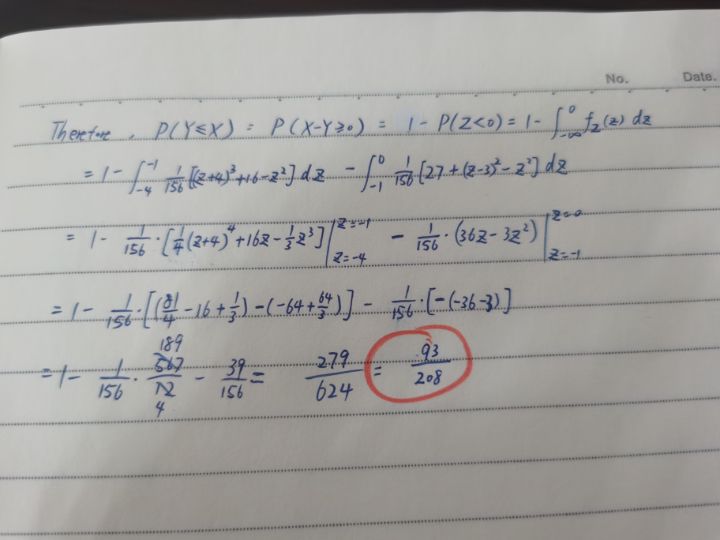 No. Date.
Therefore, P(Y≤X) = P(X-Y≥0) = 1 - P(Z<0) = 1 - ∫_{-∞}^{0} f_Z(z) dz
= 1 - ∫_{-4}^{-1} 1/156 [(z+4)^3 + 16 - z^2] dz - ∫_{-1}^{0} 1/156 [27 + (z-3)^2 - z^2] dz
= 1 - 1/156 · [1/4 (z+4)^4 + 16z - 1/3 z^3] |_{z=-4}^{z=-1} - 1/156 · (36z - 3z^2) |_{z=-1}^{z=0}
= 1 - 1/156 · [(81/4 - 16 + 1/3) - (-64 + 64/3)] - 1/156 · [-(-36-3)]
= 1 - 1/156 · 567/12 189/4 - 39/156 = 279/624 = 93/208